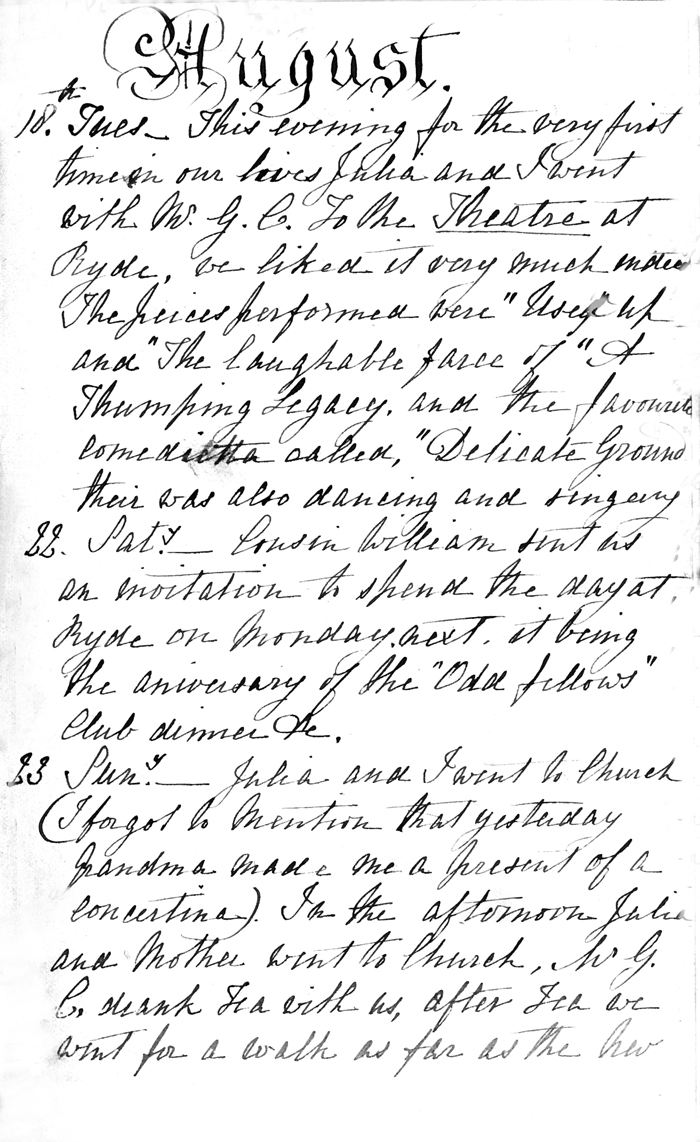 August.
18.th Tues — This evening for the very first
time in our lives Julia and I went
with Mr. G. C. To the Theatre at
Ryde, we liked it very much indee
The peices performed were "Used" up
and "The laughable farce of "A
Thumping Legacy. and the favourite
comedietta called, "Delicate Ground
their was also dancing and singeing
22. Sat.y — Cousin William sent us
an invitation to spend the day at
Ryde on Monday next. it being
the aniversary of the "Odd fellows"
Club dinner &c.
23 Sun.y — Julia and I went to Church
(I forgot to mention that yesterday
Grandma made me a present of a
concertina). In the afternoon Julia
and Mother went to Church, Mr G.
C. drank Tea with us, after Tea we
went for a walk as far as the New